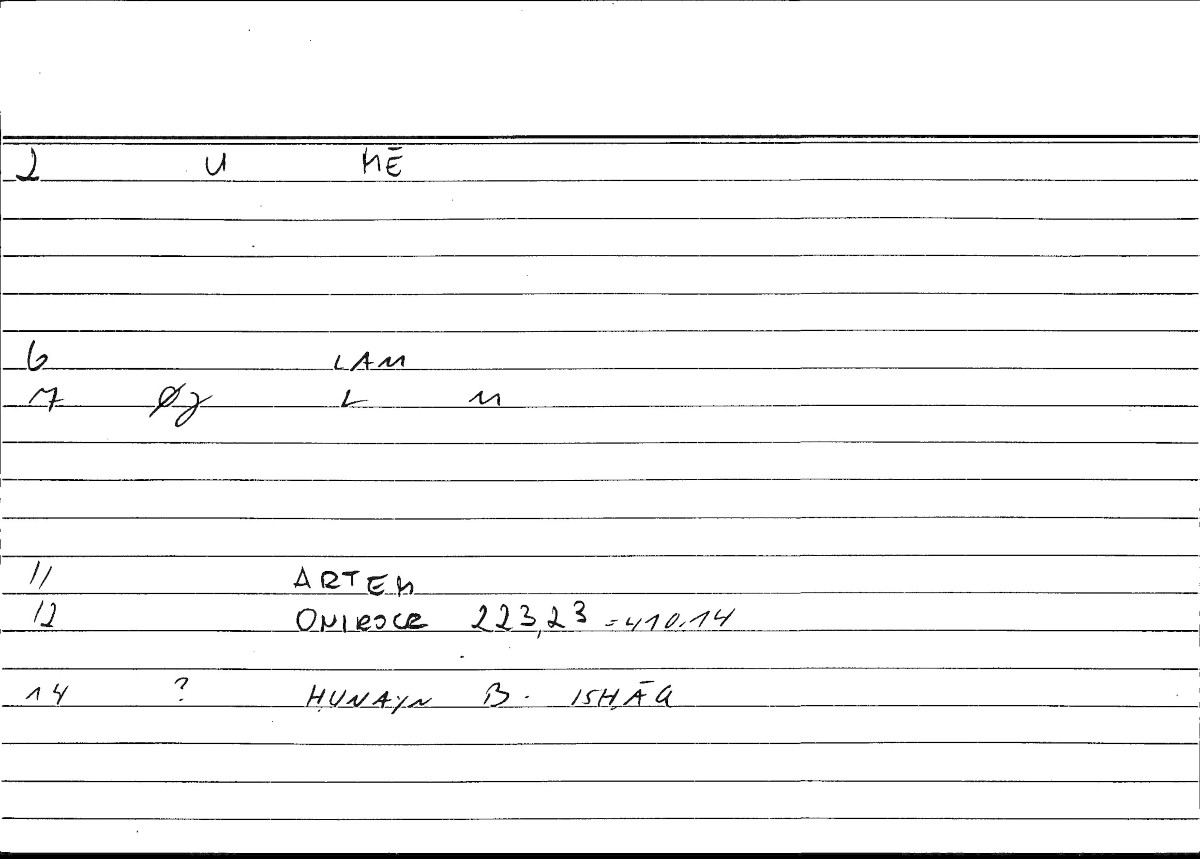 2 U MĒ
6 LAM
7 Øy L M
11 ARTEM
12 ONIROCR 223,23 = 410.14
14 ? ḤUNAYN B. ISḤĀQ